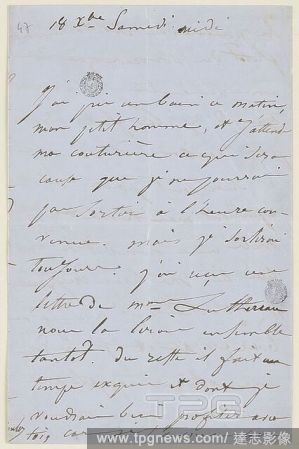 47
18 Xbre Samedi midi
J'ai pris un bain ce matin,
mon petit homme, et j'attends
ma couturière ce qui sera
cause que je ne pourrai
pas sortir à l'heure con-
venue. mais je sortirai
toujours. j'ai reçu une
lettre de Mme Luthereau
nous la lirons ensemble
tantôt. du reste il fait un
temps exquis et dont je
voudrais bien profiter avec
toi, car
TPG
www.tpgnews.com 達志影像